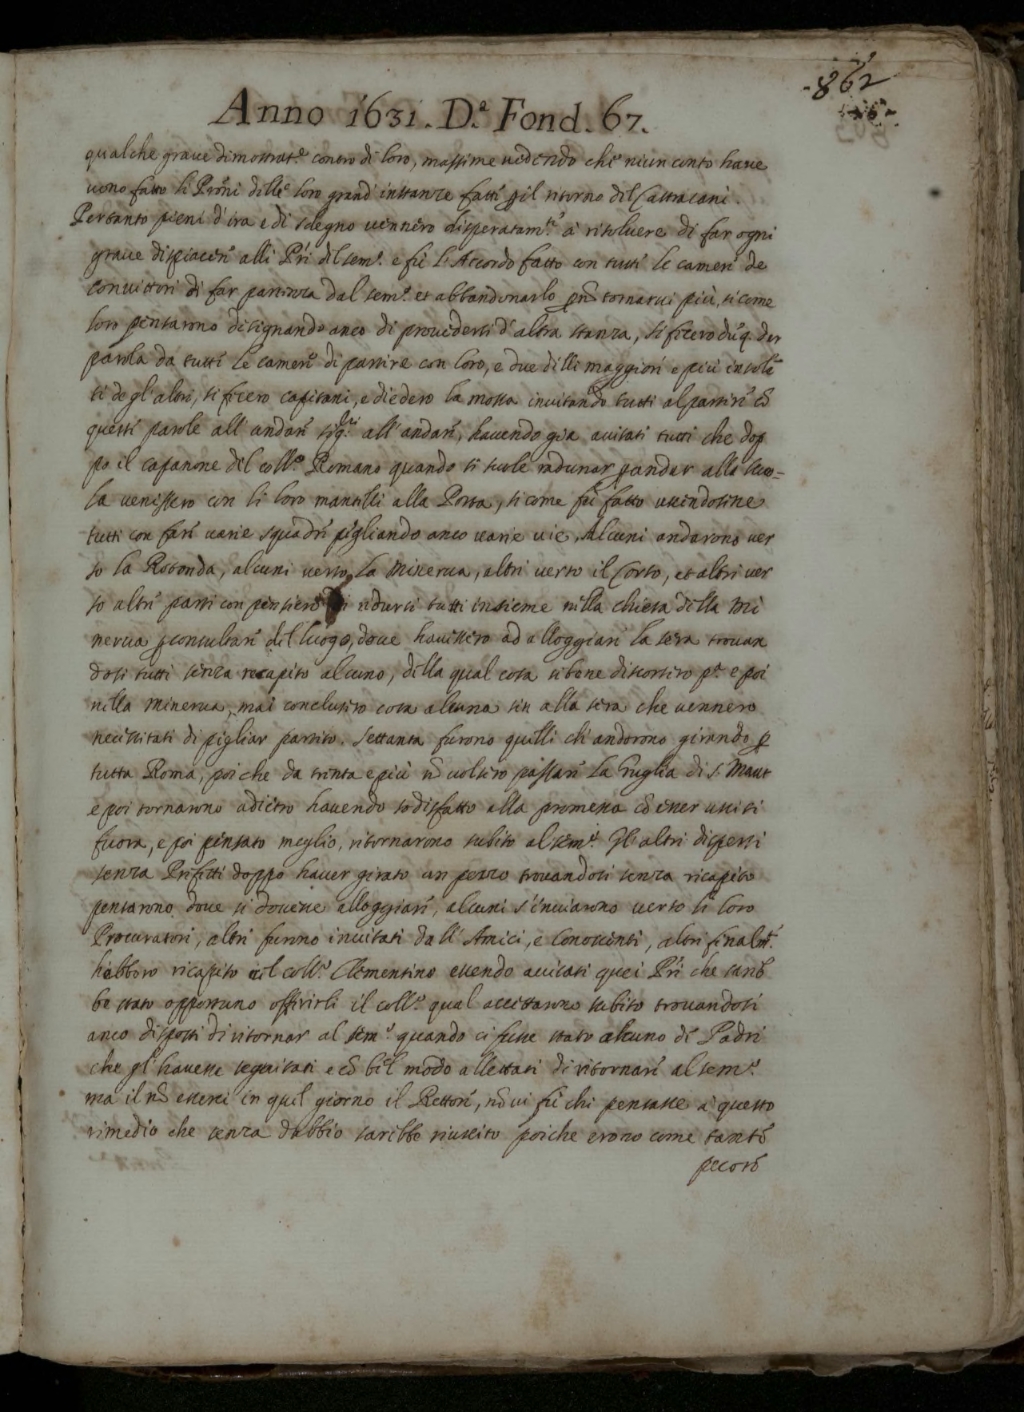 862
Anno 1631. D.ª Fond. 67.
qualche graue dimostrat.e contro di loro, massime uedendo che niun conto haue
uono fatto li Proñi delle loro grandi instanze fatte p il ritorno del Cattacani.
Pertanto pieni d'ira e di sdegno uennero disperatam.te à risoluere di far ogni
graue dispiacere alli Pri del sem.o e fù l'Accordo fatto con tutte le camere de
conuittori di far partenza dal sem.o et abbandonarlo tornarui più, si come
loro pensarono disignando anco di prouedersi d'altra stanza, si fecero duq. dar
parola da tutte le camere di partire con loro, e due delli maggiori e più insolē
ti degl'altri, si fecero capitani, e diedero la mossa inuitando tutti al partire cō
queste parole all'andare all'andare, hauendo gia auisati tutti che dop
po il campanone del coll.o Romano quando si suole radunar p andar alle scuo=
la uenissero con li loro mantelli alla Porta, si come fù fatto uscendosene
tutti con fare uarie squadre pigliando anco uarie uie. Alcuni andarono uer
so la Rotonda, alcuni uerso la Minerua, altri uerso il Corso, et altri uer
so altre parti con pensiero di ridursi tutti insieme nella chiesa della Mi
nerua p consultare del luogo, doue hauessero ad alloggiare la sera trouan
dosi tutti senza recapito alcuno, della qual cosa sibene discorsero p.a e poi
nella Minerua, mai conclusero cosa alcuna sin alla sera che uennero
necessitati di pigliar partito. Settanta furono quelli ch'andorono girando p
tutta Roma, poiche da trenta e più nō uolsero passare la Guglia di S. Maut
e poi tornarono adietro hauendo sodisfatto alla promessa cō esser usciti
fuora, e poi pensato meglio, ritornarono subito al sem.o Gl'altri dispersi
senza Prefetti doppo hauer girato un pezzo trouandosi senza ricapito
pensarono doue si douesse alloggiare, alcuni s'inuiarono uerso li loro
Procuratori, altri furono inuitati dall'Amici, e Conoscenti, altri finalm.te
hebbero ricapito nel coll.o Clementino essendo auisati quei Pri che sareb
be stato opportuno offerirli il coll.o qual accettarono subito trouandosi
anco disposti di ritornar al sem.o quando ci fusse stato alcuno de Padri
che gl'hauesse seguitati e cō bel modo allettati di ritornare al sem.o
ma il nō esserci in quel giorno il Rettore, nō ui fù chi pensasse à questo
rimedio che senza dubbio sarebbe riuscito poiche erono come tante
pecore